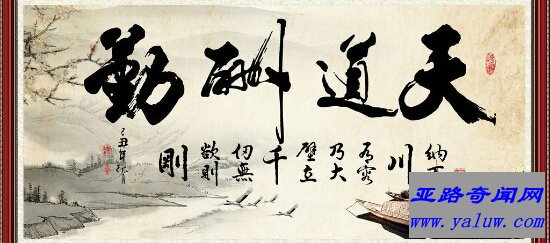 天道酬勤
納
川
有容
乃大
壁立
千
仞無
欲則
剛
己丑年
亚路奇闻网
www.yaluw.com